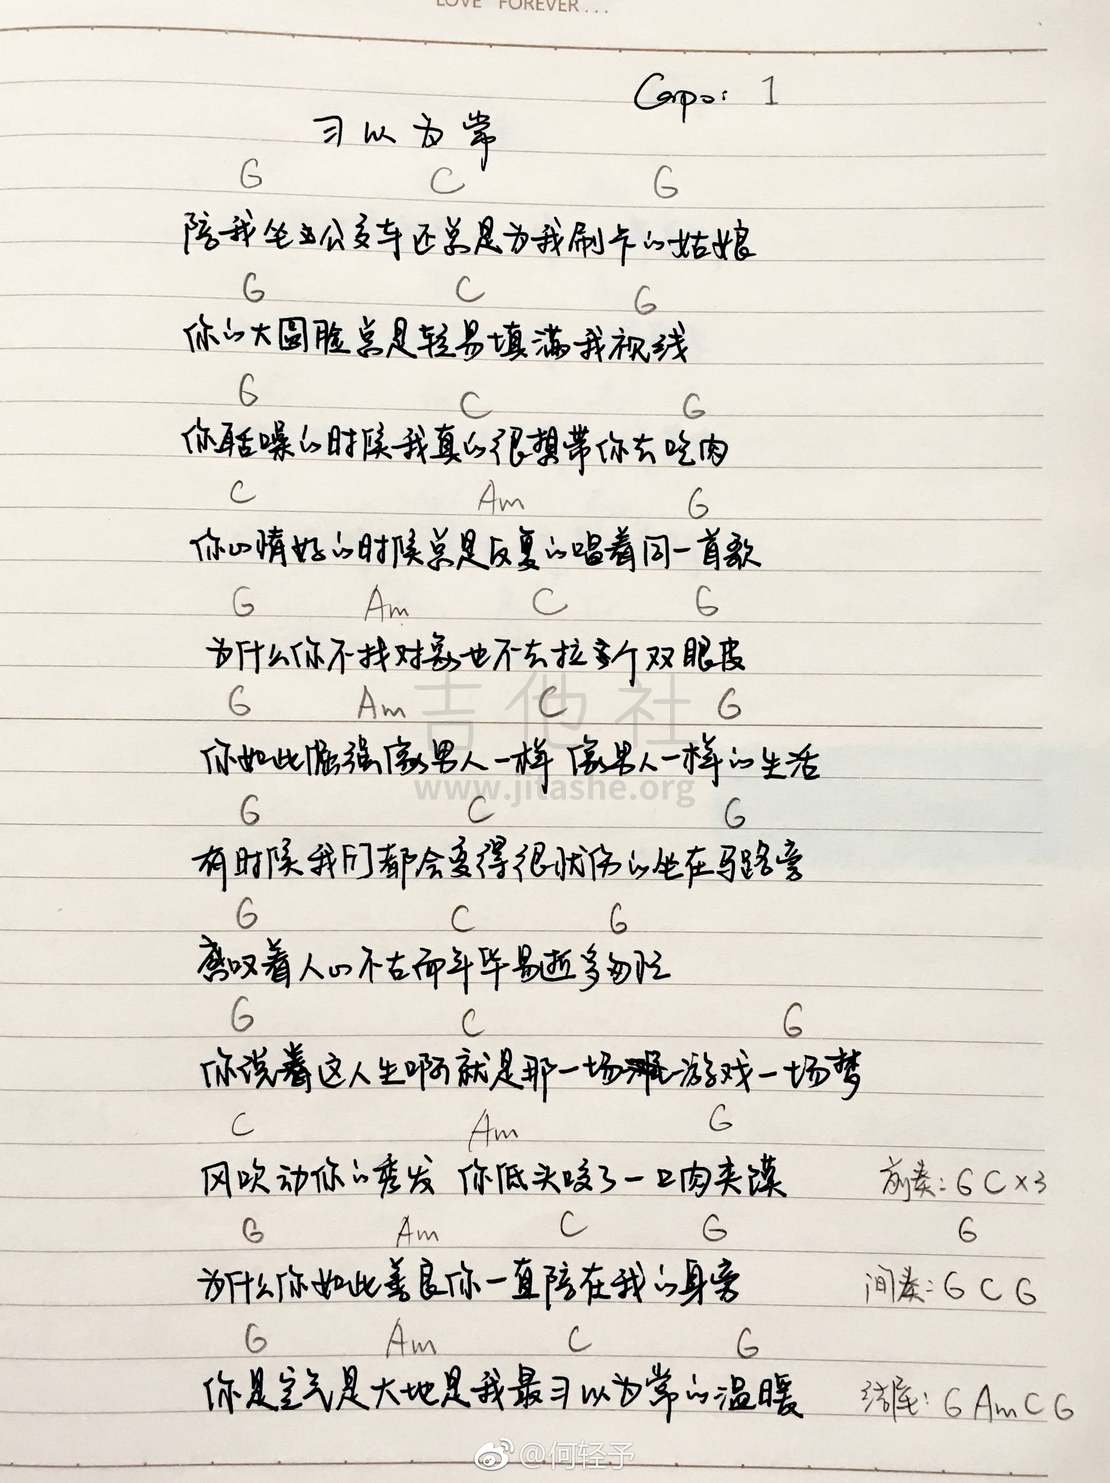 LOVE FOREVER...
Capo: 1
习以为常
G C G
陪我坐公交车还总是为我刷卡的姑娘
G C G
你的大圆脸总是轻易填满我视线
G C G
你聒噪的时候我真的很想带你去吃肉
C Am G
你心情好的时候总是反复的唱着同一首歌
G Am C G
为什么你不找对象也不去拉个双眼皮
G Am C G
你如此倔强像男人一样 像男人一样的生活
G C G
有时候我们都会变得很忧伤的坐在马路旁
G C G
感叹着人心不古而年华易逝多匆忙
G C G
你说着这人生啊就是那一场游戏一场梦
C Am G
风吹动你的秀发 你低头咬了一口肉夹馍
前奏: G C x3
G Am C G
G
为什么你如此善良你一直陪在我的身旁
间奏: G C G
G Am C G
你是空气是大地是我最习以为常的温暖
结尾: G Am C G
吉他社
www.jitashe.org
@何轻予